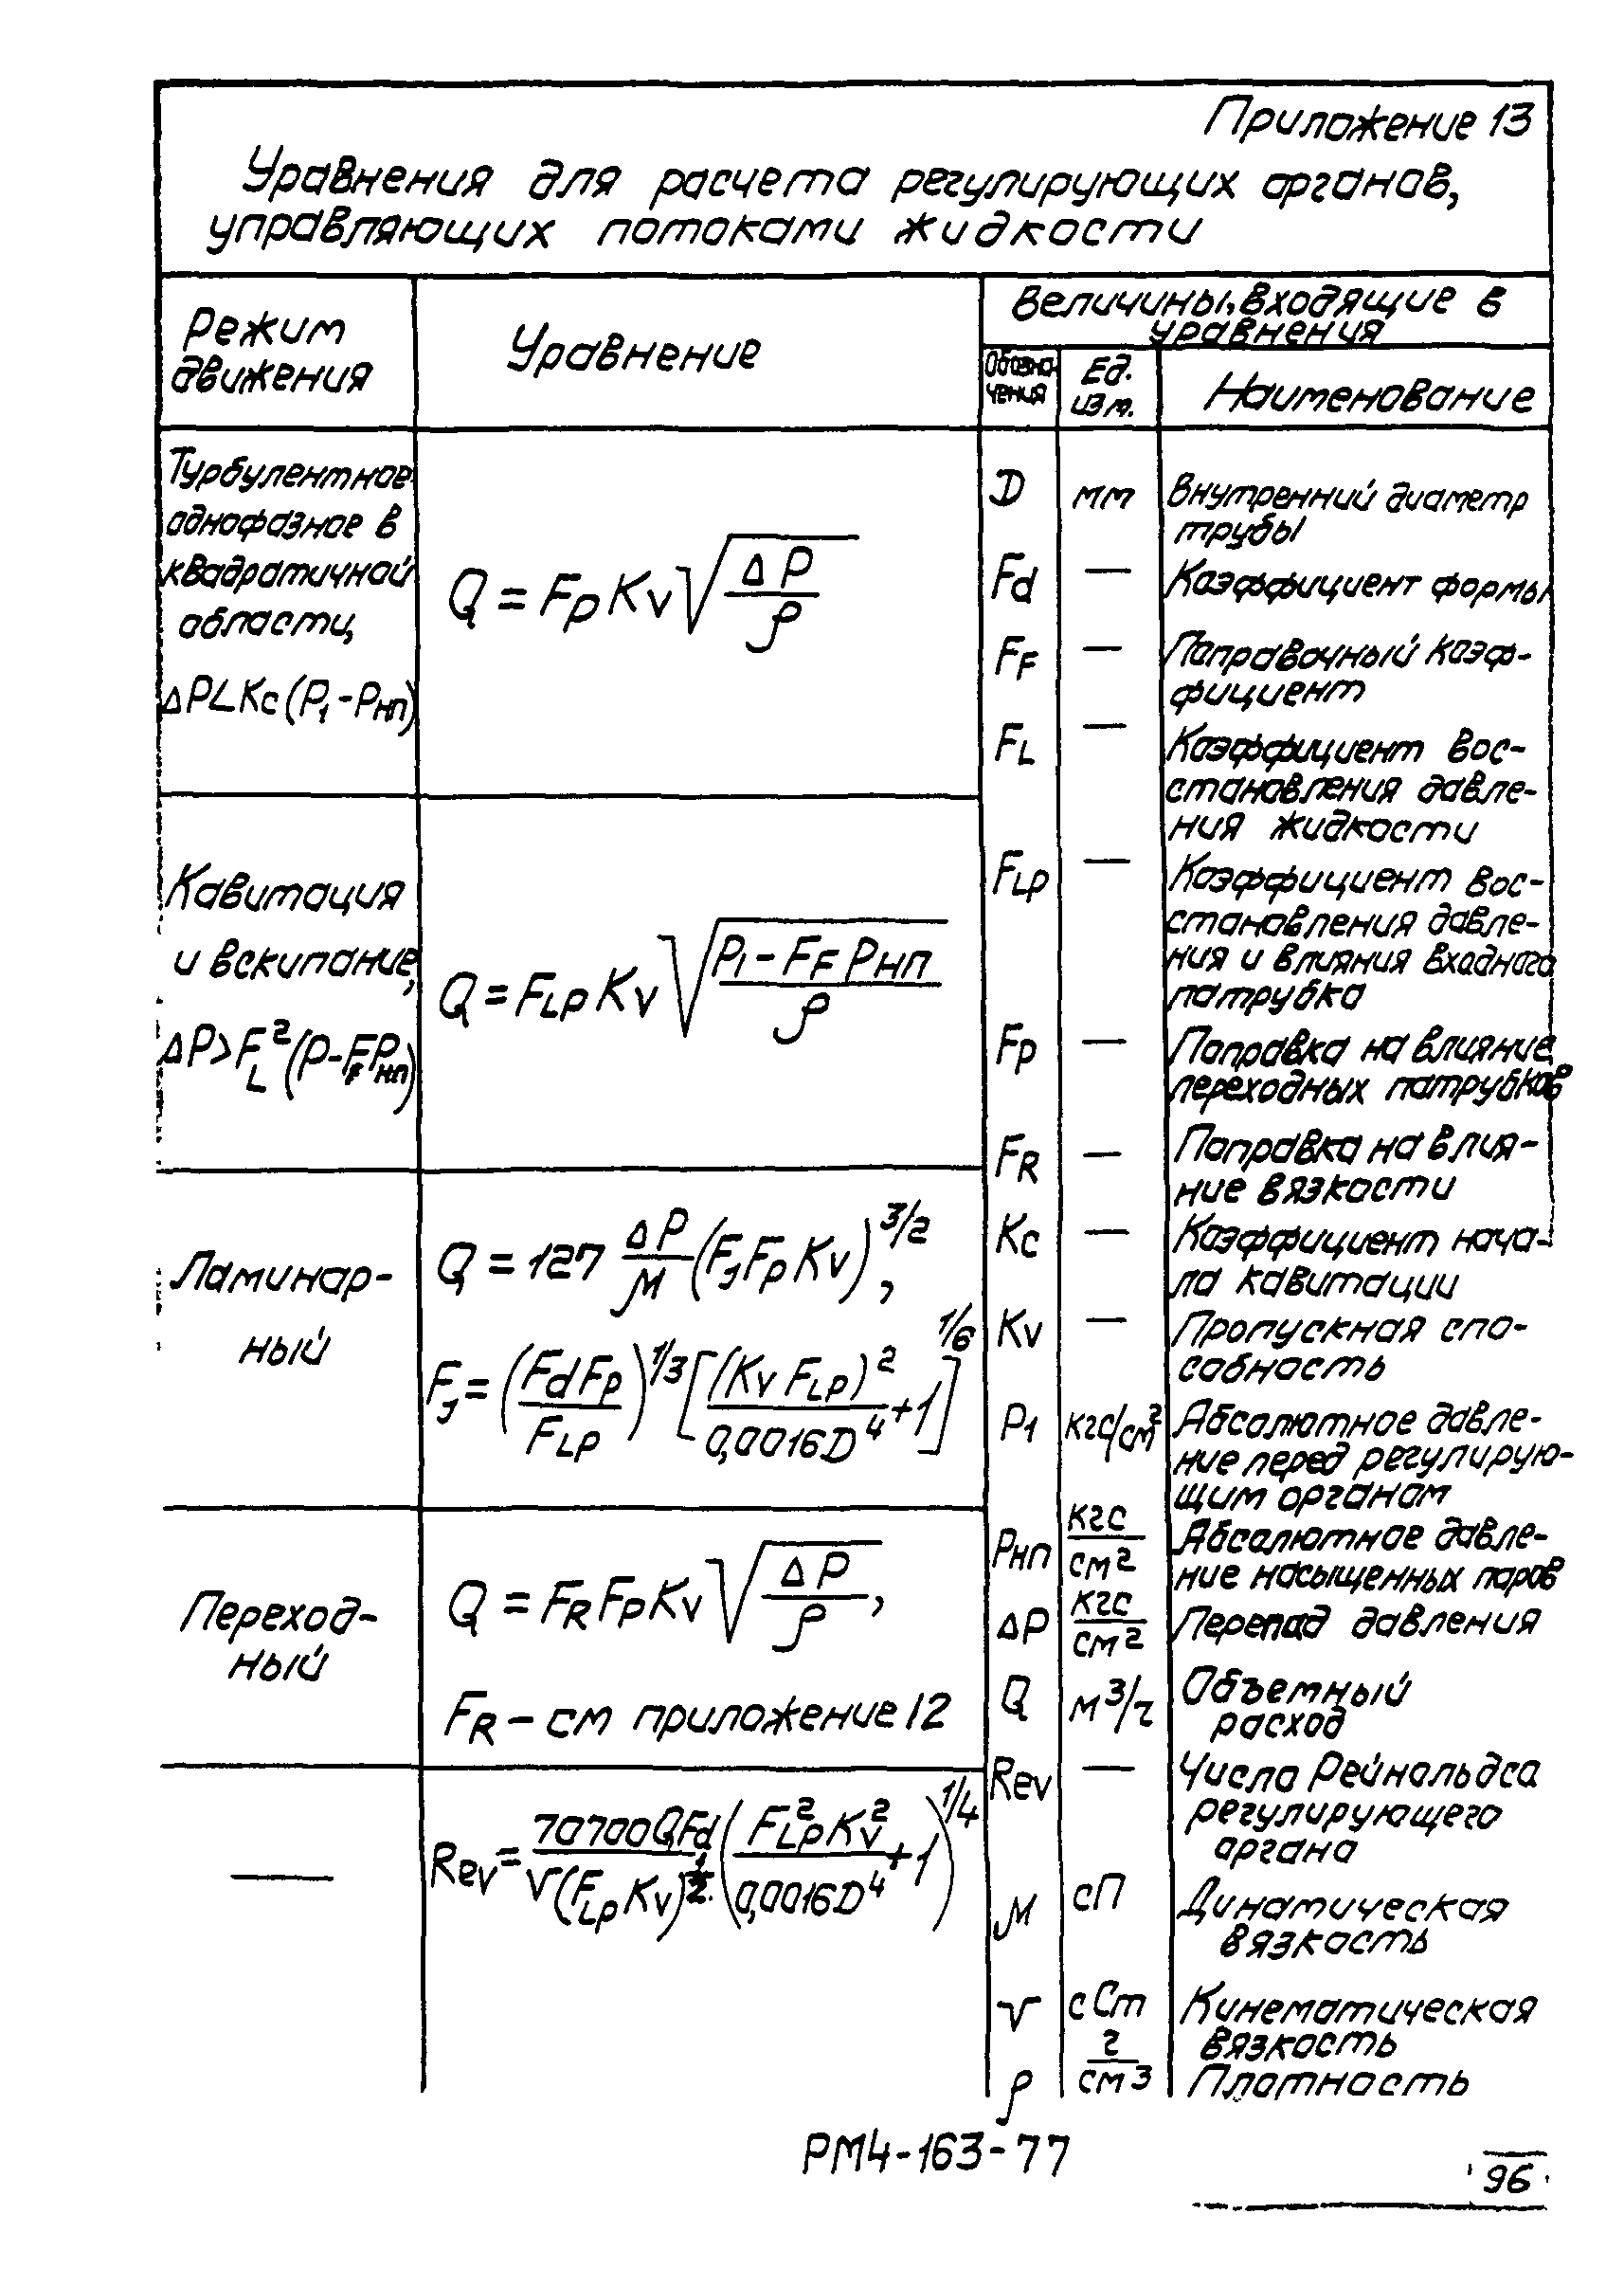 Приложение 13
Уравнения для расчета регулирующих органов,
управляющих потоками жидкости
Режим
движения
Уравнение
Величины, входящие в
уравнения
Обозна-
чения
Ед.
изм.
Наименование
Турбулентное
однофазное в
квадратичной
области,
ΔP∠Kc(P₁-Pнп)
Q = Fp Kv √(ΔP/ρ)
Кавитация
и вскипание,
ΔP>F_L²(P-F_F Pнп)
Q = F_Lp Kv √((P₁-F_F Pнп)/ρ)
Ламинар-
ный
Q = 127 ΔP/μ (Fȷ Fp Kv)^3/2,
Fȷ = (Fd Fp/F_Lp)^1/3 [(Kv F_Lp)²/0,0016D⁴+1]^1/6
Переход-
ный
Q = F_R Fp Kv √(ΔP/ρ),
F_R – см приложение 12
—
Rev = 70700QFd/ν(F_Lp Kv)^1/2 · (F_Lp² Kv²/0,0016D⁴+1)^1/4
D мм Внутренний диаметр
трубы
Fd — Коэффициент формы
F_F — Поправочный коэф-
фициент
F_L — Коэффициент вос-
становления давле-
ния жидкости
F_Lp — Коэффициент вос-
становления давле-
ния и влияния входного
патрубка
Fp — Поправка на влияние
переходных патрубков
F_R — Поправка на влия-
ние вязкости
Kc — Коэффициент нача-
ла кавитации
Kv — Пропускная спо-
собность
P₁ кгс/см² Абсолютное давле-
ние перед регулирую-
щим органом
Pнп кгс/см² Абсолютное давле-
ние насыщенных паров
ΔP кгс/см² Перепад давления
Q м³/ч Объемный
расход
Rev — Число Рейнольдса
регулирующего
органа
μ сП Динамическая
вязкость
ν сСт Кинематическая
вязкость
ρ г/см³ Плотность
РМ4-163-77
96